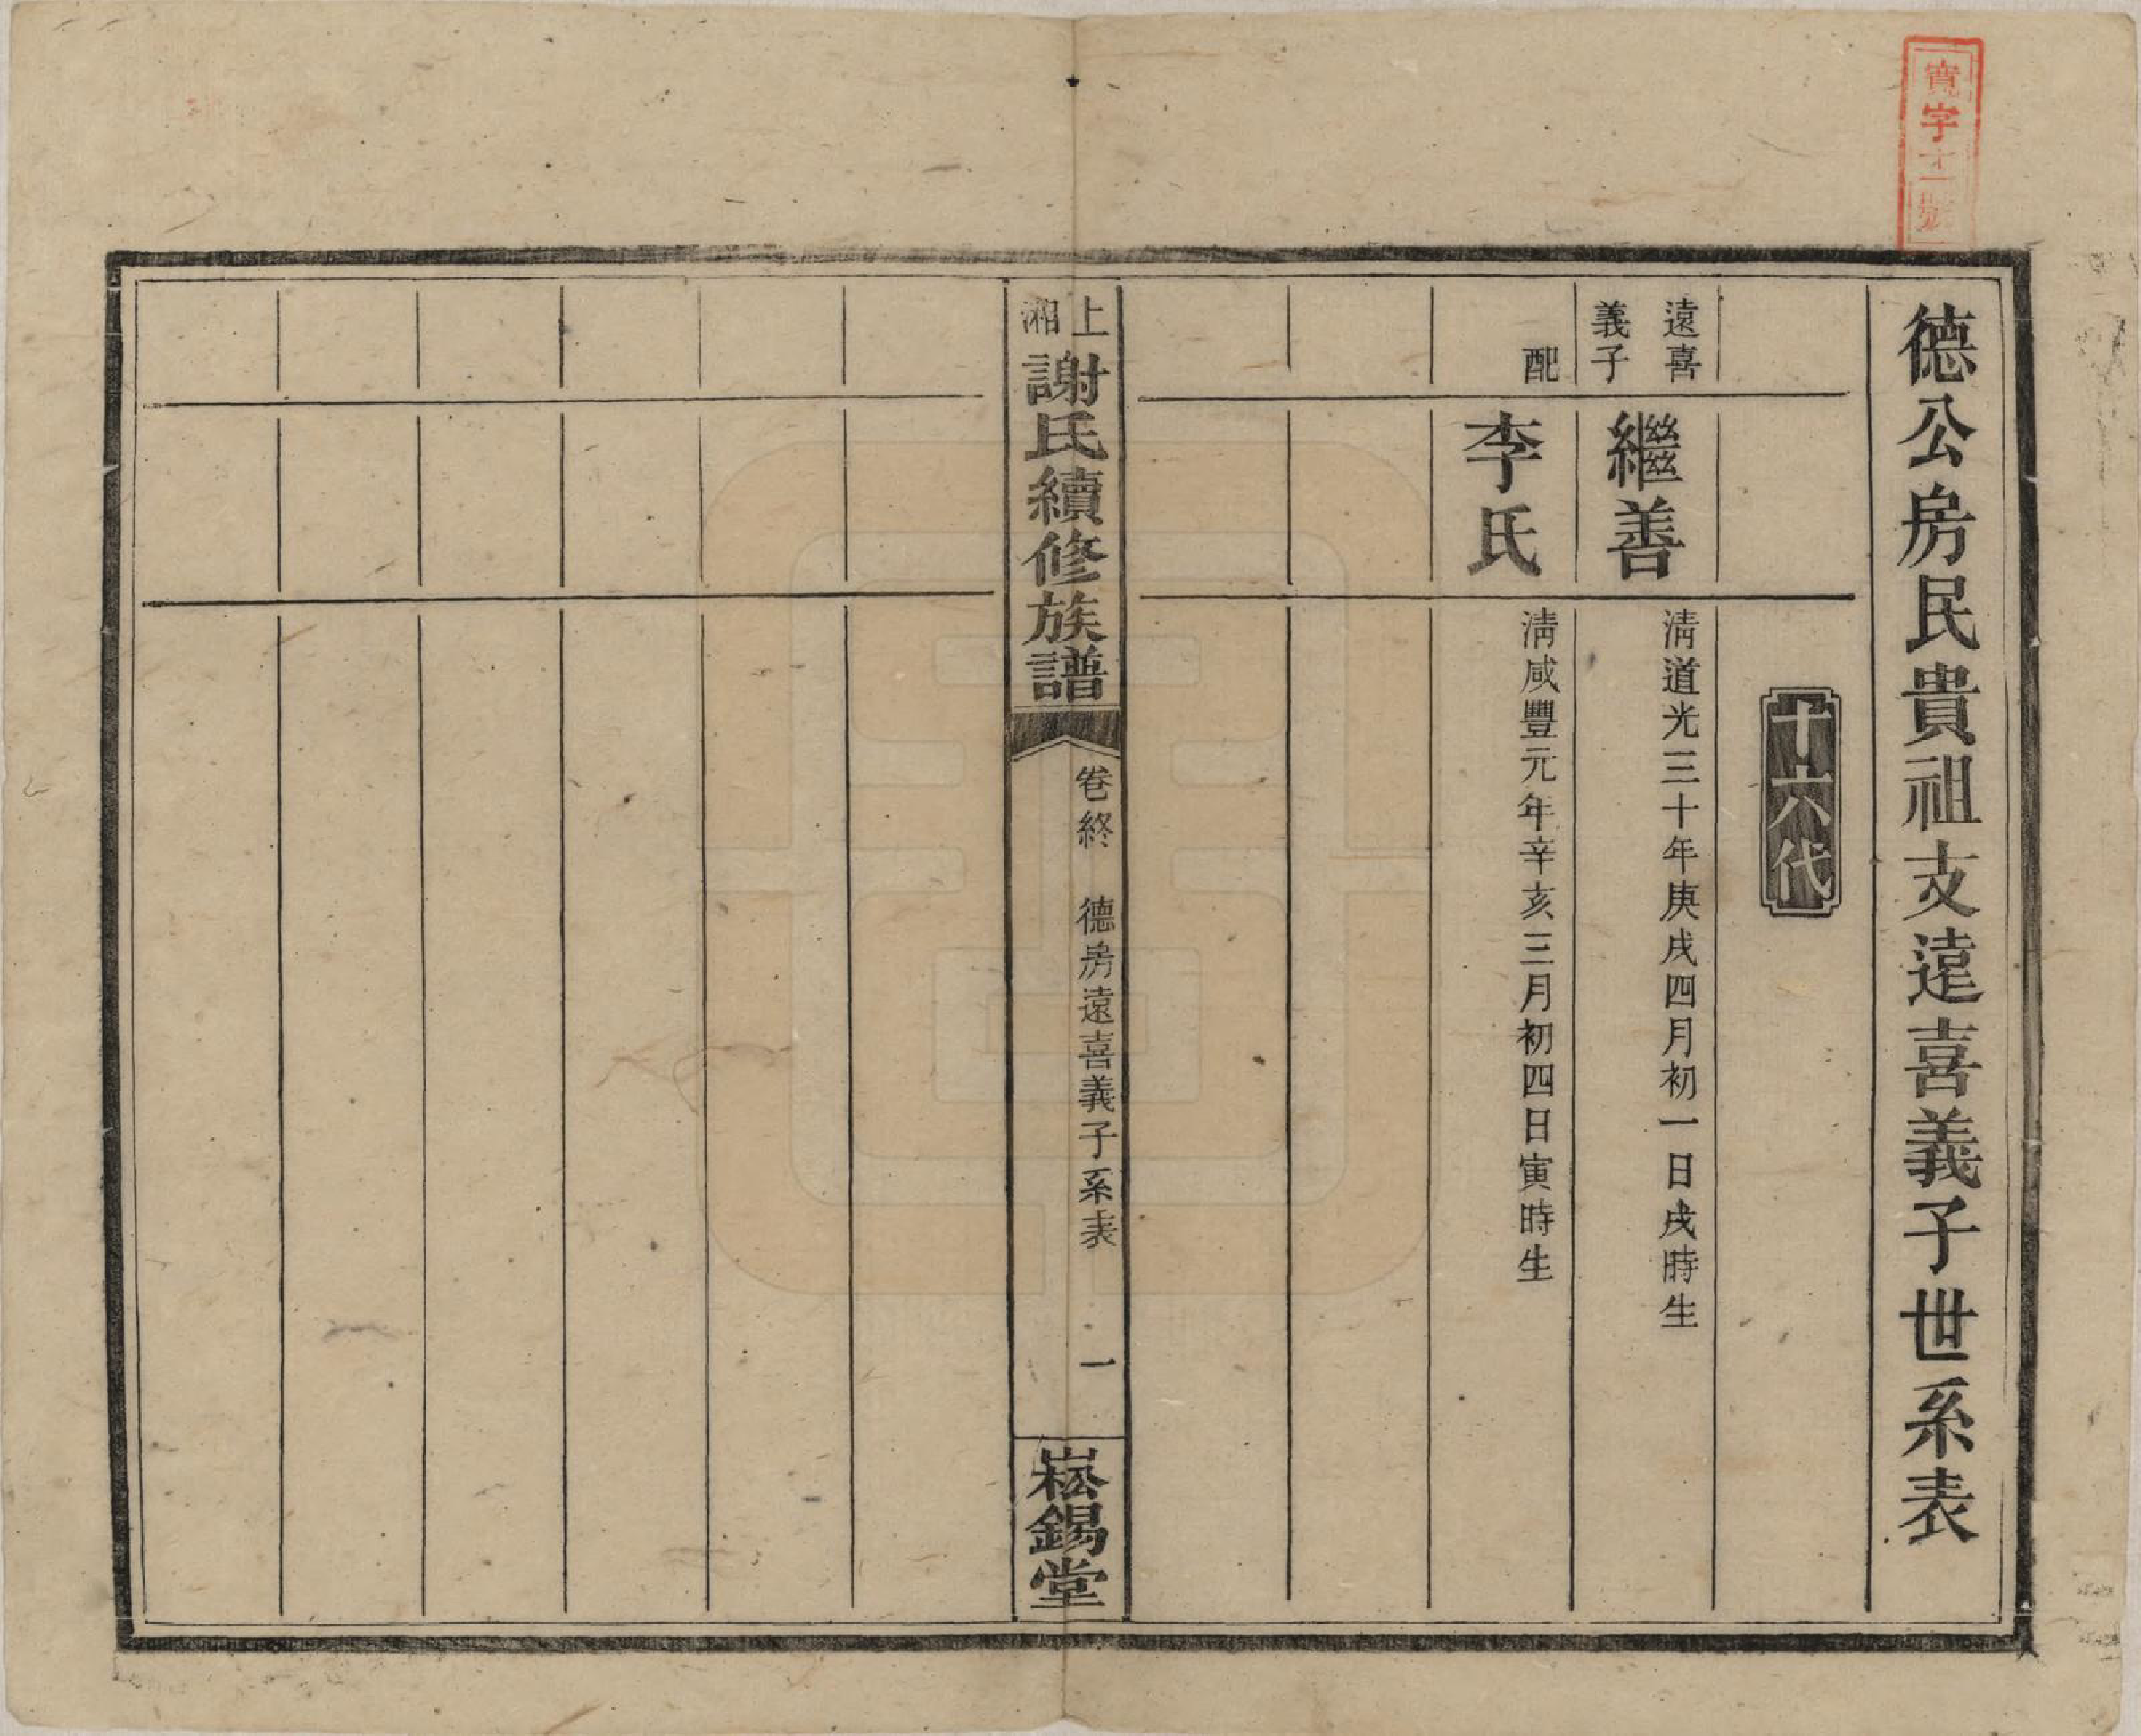 寬字十一號
德公房民貴祖支遠喜義子世系表
十六代
遠喜
義子
繼善
清道光三十年庚戌四月初一日戌時生
配
李氏
清咸豐元年辛亥三月初四日寅時生
上湘
謝氏續修族譜
卷終 德房遠喜義子系表 一
崧錫堂